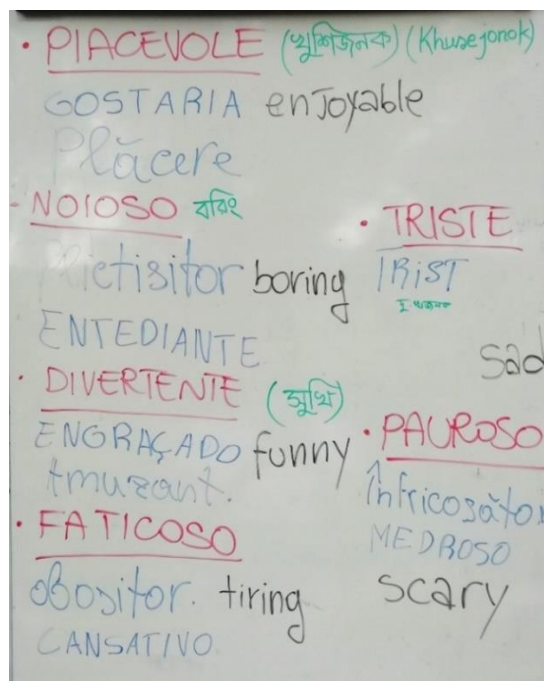 • PIACEVOLE (খুশিজনক) (Khusejonok)
GOSTARIA enjoyable
Plăcere
- NOIOSO বরিং
boring
ENTEDIANTE
• DIVERTENTE (সুখি)
ENGRAÇADO funny
Amuzant.
• FATICOSO
obositor. tiring
CANSATIVO
• TRISTE
TRIST
sad
• PAUROSO
Înfricosăto
MEDROSO
scary